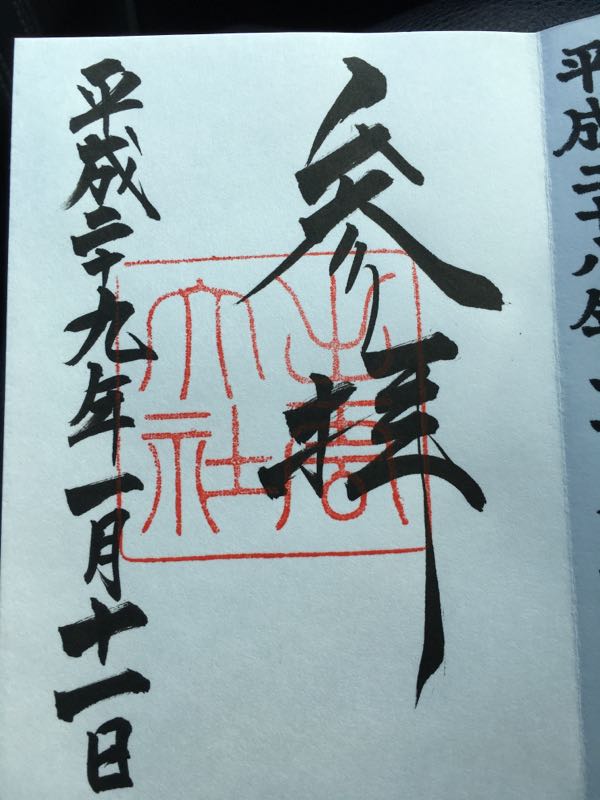 平成二十八年
参拝
出雲
大社
平成二十九年一月十一日